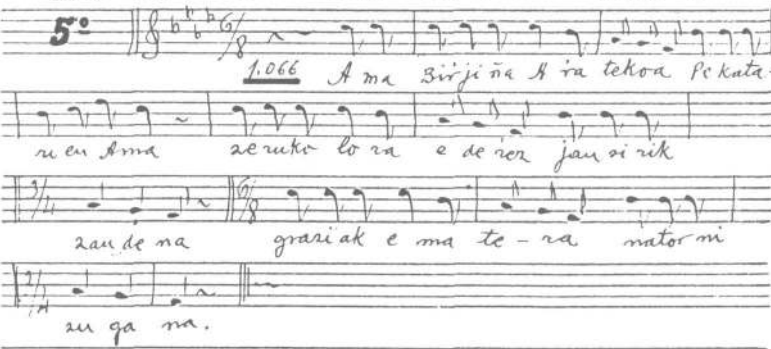 5º 6/8
1.066 Ama Birjiña Aratekoa Pekata-
rien Ama zeruko lora ederez jauzirik
3/4 zaudena 6/8 graziak ematera nator ni
2/4 zugana.